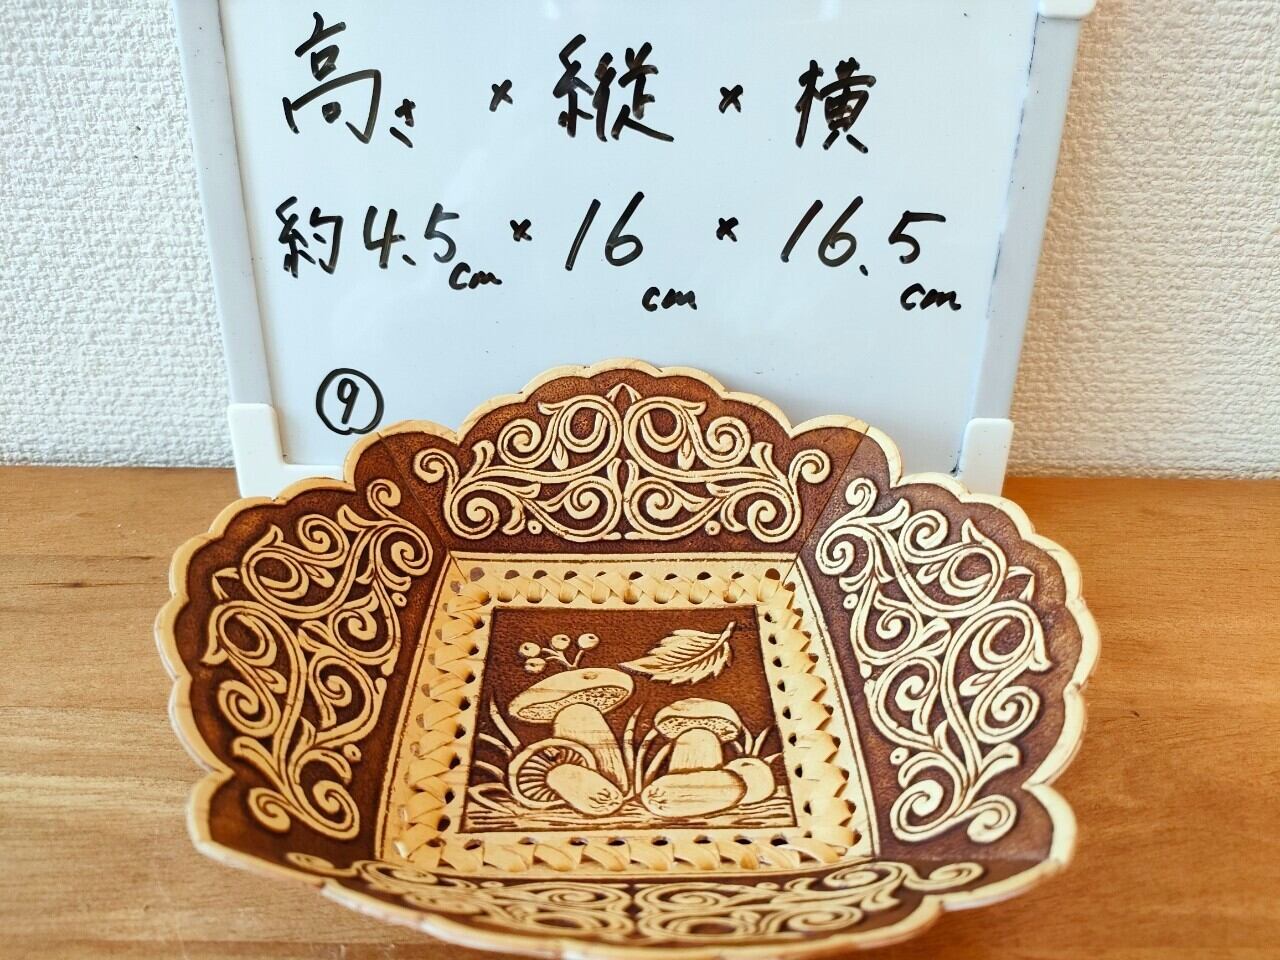 高さ × 縦 × 横
約4.5cm × 16cm × 16.5cm
⑨